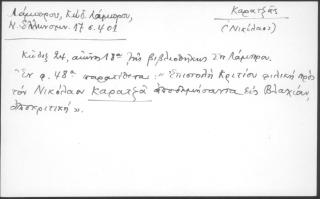 Λάμπρος, Κώδ. Λάμπρου,
Ν. Ἑλληνομν. 17 σ. 401
Καρατζᾶς
(Νικόλαος)
Κῶδιξ 24, αἰῶνος 18ου τῆς βιβλιοθήκης Σπ. Λάμπρου.
Ἐν φ. 48α παρατίθεται: «Ἐπιστολὴ Κριτίου φιλικὴ πρὸς
τὸν Νικόλαον Καρατζᾶ ἀποδημήσαντα εἰς Βλαχίαν,
ἀποκριτική».